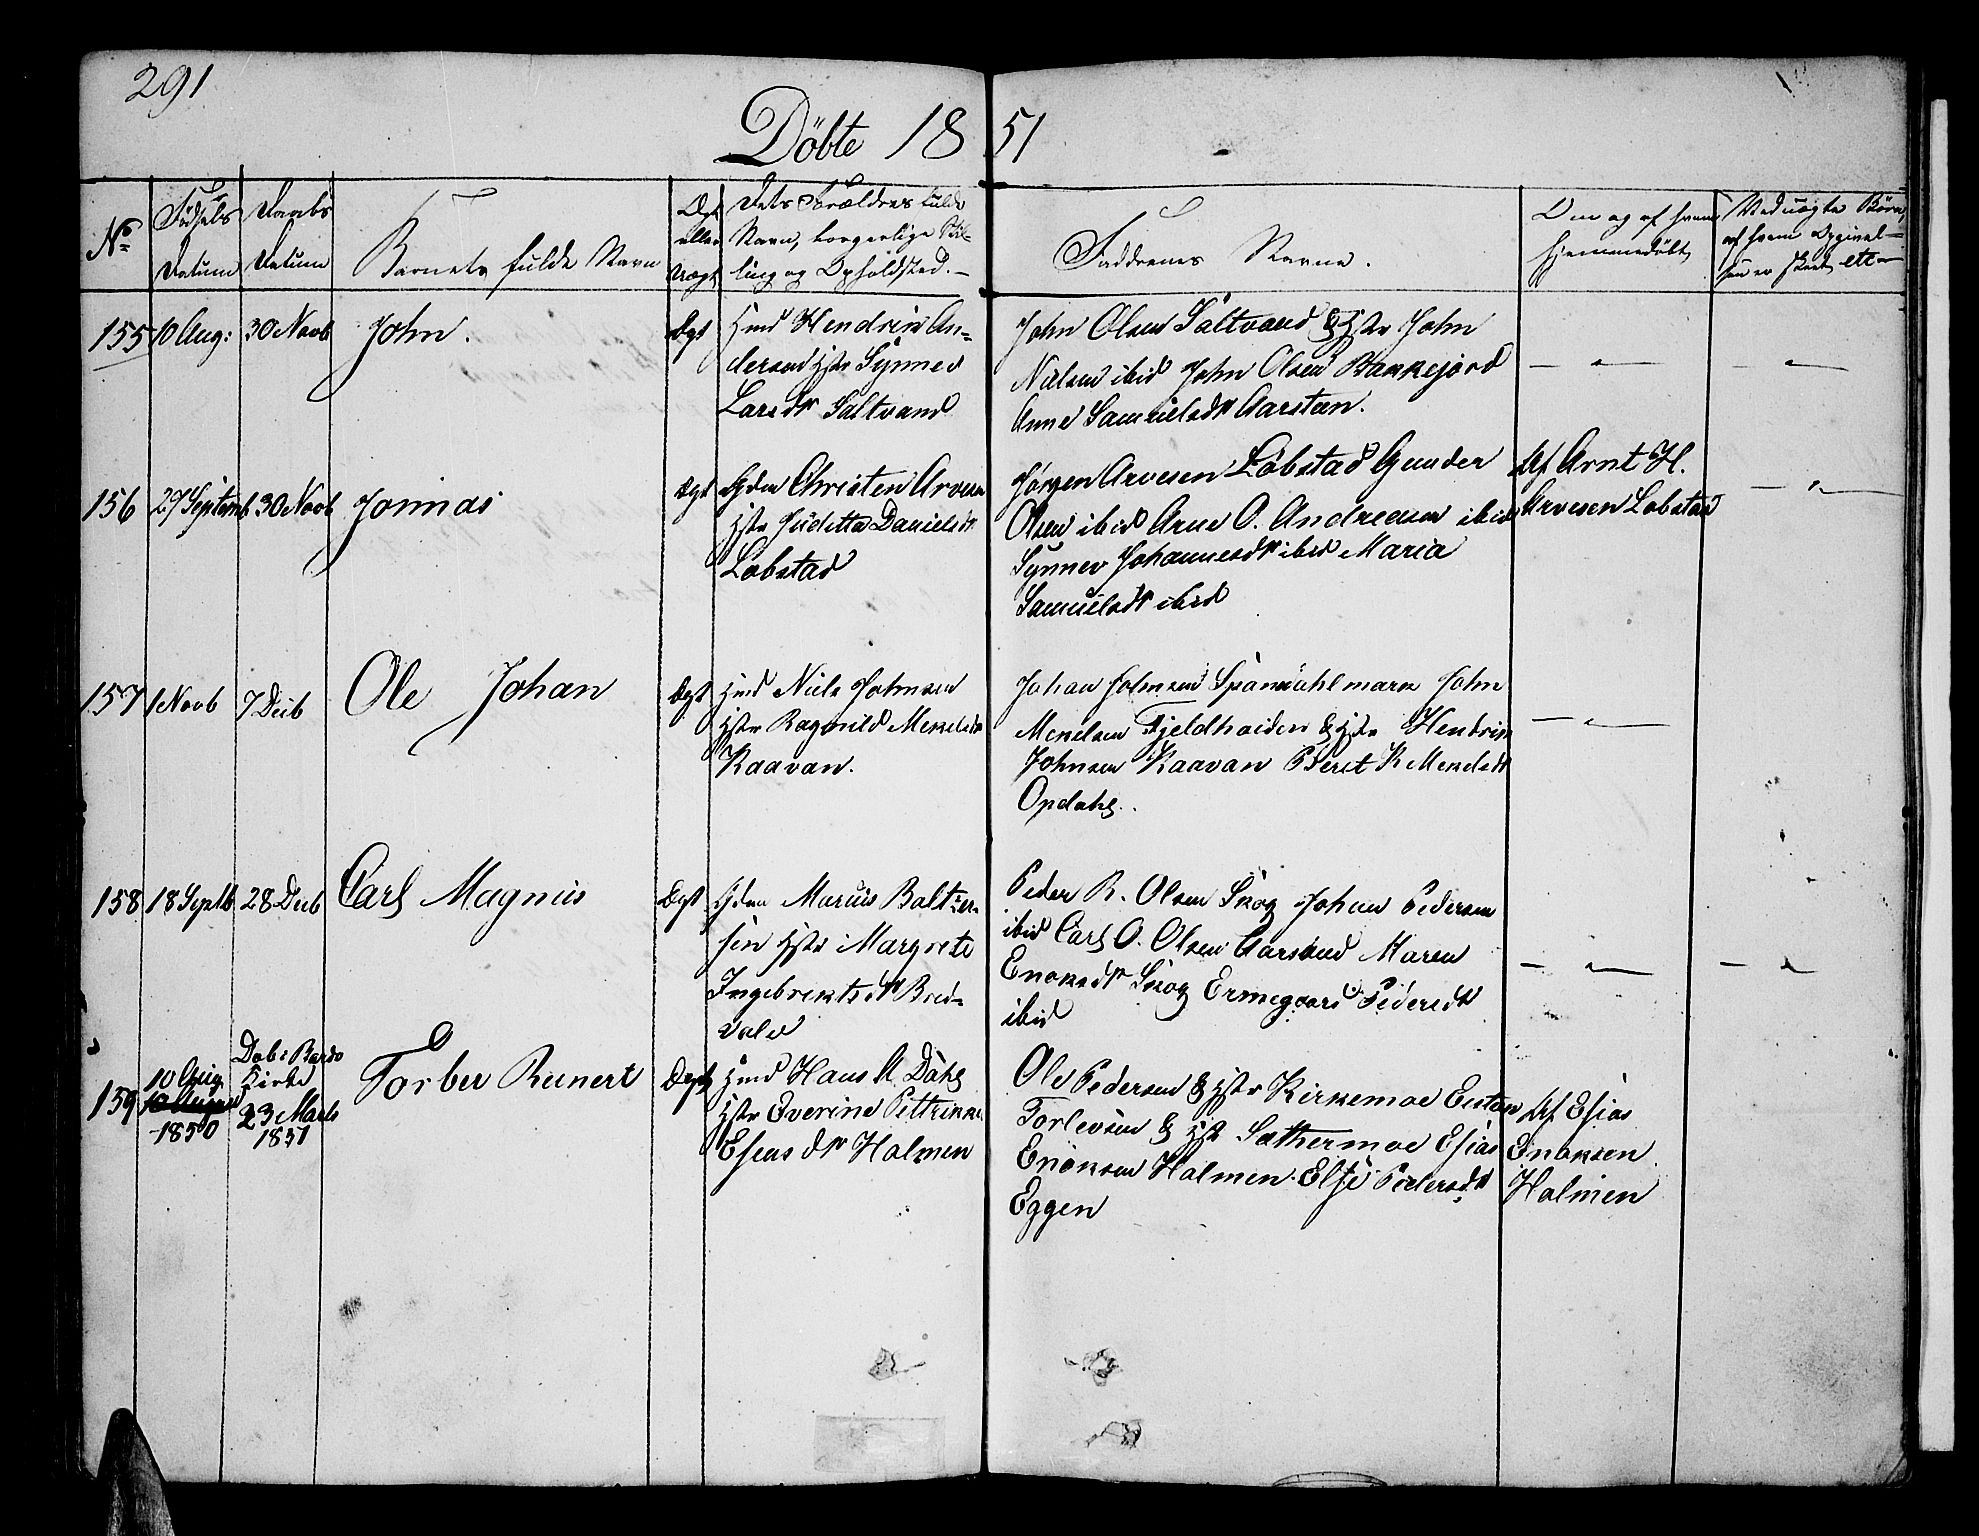 291
Döbte 1851
No
Födsels
Datum
Daabs
Datum
Barnets fulde Navn
Ægt
eller
Uægt
Dets Forældres fulde
Navn, borgerlige Stil-
ling og Opholdsted. -
Faddrenes Navne.
Om og af hvem
hjemmedöbt
Ved uægte Börn,
af hvem Opgivel-
sen er skeet etc-
155
10 Aug:
30 Novb
John.
Ægt
Hmd Hendrik An-
dersen Hstr Synnev
Larsdtr Saltvand
John Olsen Saltvand & Hstr John
Nielsen ibid John Olsen Bakkejord
Anne Samuelsdtr Aarsteen.
156
29 Septemb
30 Novb
Jonnas
Ægt
Gdm Christen Arvesen
Hstr Juditta Danielsdtr
Lobstad
Jörgen Arvesen Löbstad Gunder
Olsen ibid Arne O. Andreasen ibid
Synnev Johannesdtr ibid Maria
Samuelsdtr ibid
Af Arnt H.
Arvesen Lobstad
157
1 Novb
7 Decb
Ole Johan
Ægt
Hmd Niels Johnsen
Hstr Ragnild Mekelsdtr
Kaavan.
Johan Johnsen Spansdahlmark John
Mekelsen Fjeldheiden & Hstr Hendrik
Johnsen Kaavan Beret K Mekelsdtr
Opdahl.
158
18 Septb
28 Decb
Carl Magnus
Ægt
Gdm Marcus Baltzer-
sen Hstr Margrete
Ingebrektsdtr Bred-
vold
Peder R. Olsen Skog Johan Pedersen
ibid Carl O. Olsen Aarsand Maren
Enoksdtr Skog Ermegaard Pedersdtr
ibid
159
10 Aug
1850
Döb i Bardo
Kirke
23 Marts
1851
Torber Reinert
Ægt
Hmd Hans A Dahl
Hstr Everine Pettrikke
Eseasdtr Holmen
Ole Pedersen & Hstr Kirkemoe Eistan
Torlevsen & Hstr Sathermoe Esias
Enoksen Holmen. Else Pedersdtr
Eggen
Af Esias
Enoksen
Holmen